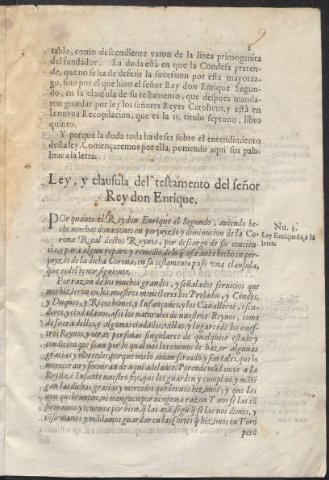 9
table, como descendiente varon de la linea primogenita
del fundador. La duda està en que la Condesa preten-
de, que no se ha de deferir la sucession por este mayoraz-
go, sino por el que hizo el señor Rey don Enrique Segun-
do, en la clausula de su testamento, que despues manda-
ron guardar por ley los señores Reyes Catolicos, y està en
la nueua Recopilacion, que es la 11, titulo septimo, libro
quinto.
Y porque la duda toda ha de ser sobre el entendimiento
desta ley. Començaremos por ella, poniendo aqui sus pala-
bras a la letra.
Ley, y clausula del testamento del señor
Rey don Enrique.
POr quanto el Rey don Enrique el Segundo, auiendo he-
cho muchas donaciones en perjuyzio y diminucion de la Co-
rona Real destos Reynos, por descargo de su concien-
cia, y para algun reparo y remedio de lo q̃ assi auia hecho en per-
juyzio de la dicha Corona, en su testamento puso vna clausula,
que es del tenor siguiente.
Nu. 3.
Ley Enriqueña, a la
letra.
Por razon de los muchos grandes, y señalados seruicios que
nos hizieron en los nuestros menesteres los Prelados, y Condes,
y Duques, y Ricos homes, e Infançones, y los Caualleros, y escu-
deros, y ciudadanos, assi los naturales de nuestros Reynos, como
de fuera dellos, y algunas ciudades, villas, y lugares de los nues-
tros Reynos, y otras personas singulares de qualquier estado, y
condicion que sean: por lo qual nos les ouimos de hazer algunas
gracias y mercedes, porque nos lo auian seruido, y son tales, que lo
mereceran y seruiran de aqui adelante. Por ende mãdamos a la
Reyna e Infante nuestro fijo, que les guarden y cumplan, y mãtẽ-
gan las dichas gracias y mercedes que les nos hizimos, y que las
non quebranten, ni menguen por ninguna razon. Y nos se las cõ-
firmamos, y tenemos por bien, q̃ las ayã, segũ q̃ se las nos dimos, y
cõfirmamos y mãdamos guardar en las Cortes q̃ hizimos en Toro
pero